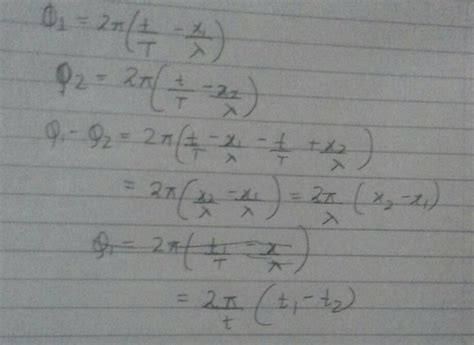 Φ₁ = 2π(t/T − x₁/λ)
Φ₂ = 2π(t/T − x₂/λ)
Φ₁ − Φ₂ = 2π(t/T − x₁/λ − t/T + x₂/λ)
= 2π(x₂/λ − x₁/λ) = 2π/λ (x₂ − x₁)
Φ₁ = 2π(t₁/T − x/λ)
= 2π/t (t₁ − t₂)